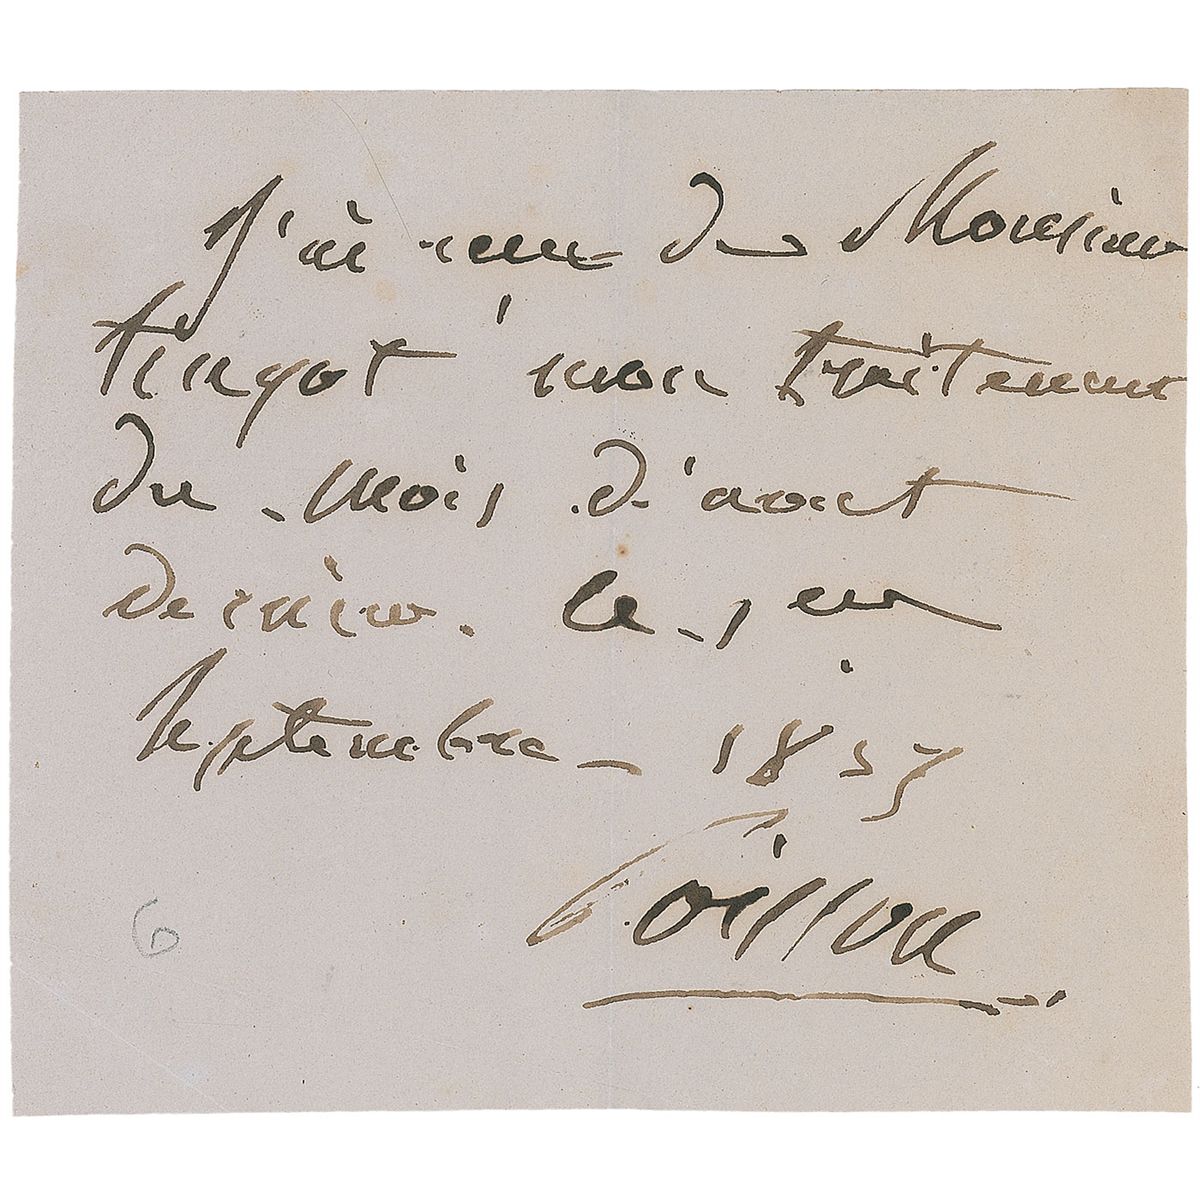 J'ai reçu de Monsieur
mon traitement
du mois d'aout
dernier. le
septembre 1837
Poisson
6